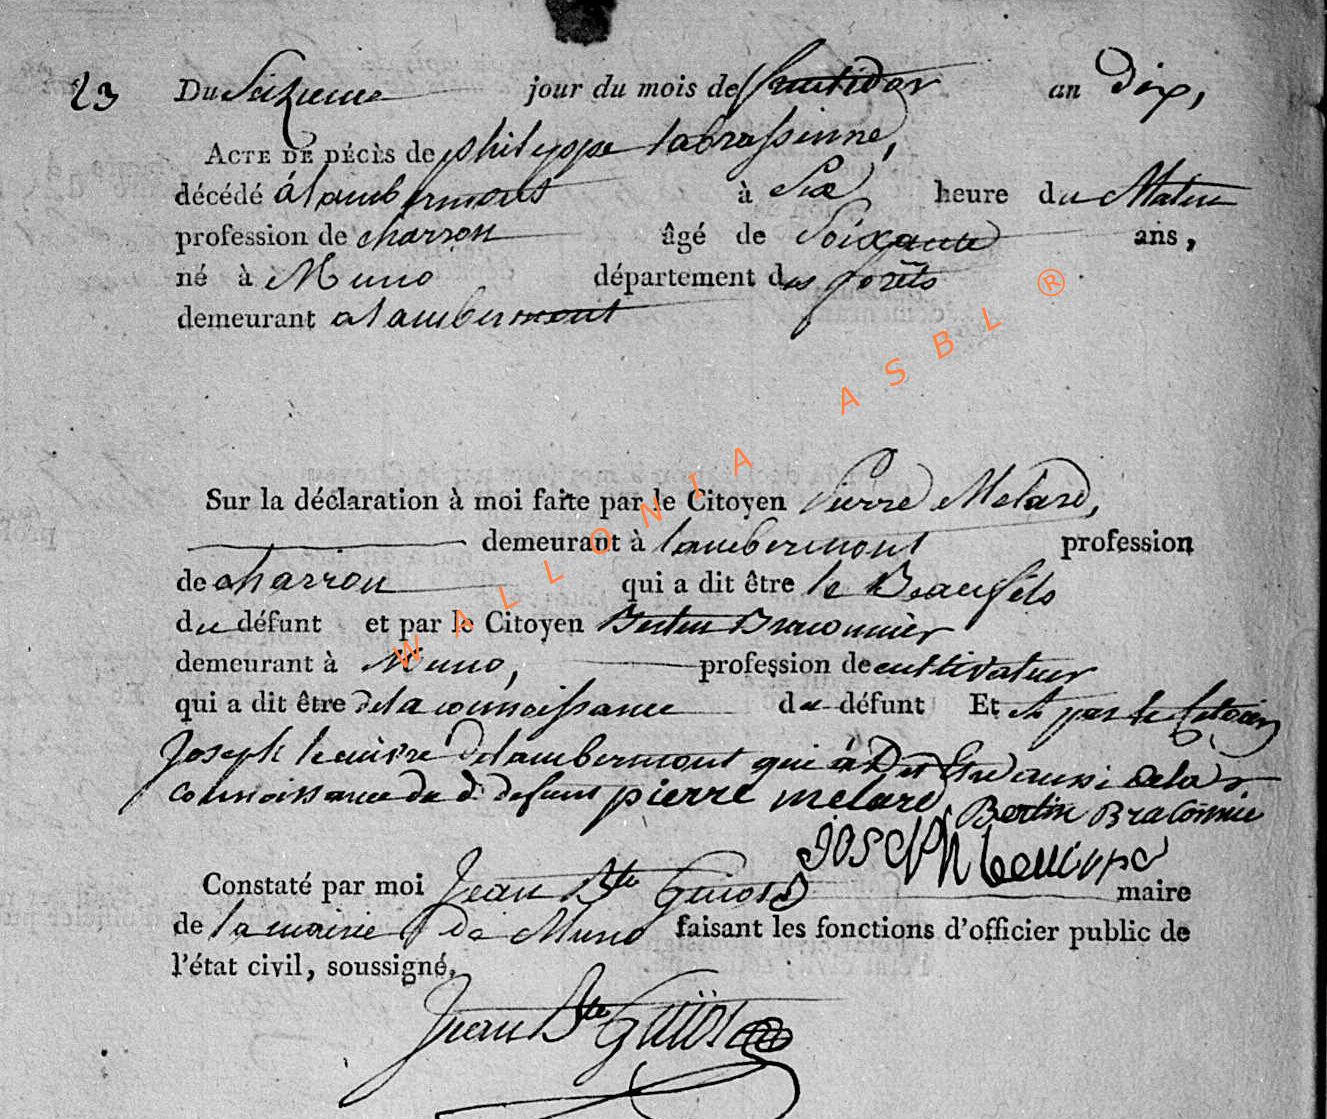 23 Du Seizieme jour du mois de fructidor an Dix,
ACTE DE DÉCÈS de philippe labrassinne,
décédé á lambermont à Six heure du Matin
profession de charron âgé de Soixante ans,
né à Muno département des forêts
demeurant a lambermont
Sur la déclaration à moi faite par le Citoyen Pierre Melard,
demeurant à lambermont profession
de charron qui a dit être le Beaufils
du défunt et par le Citoyen Bertin Braconnier
demeurant à Muno, profession de cultivateur
qui a dit être de la connoissance du défunt Et et par le Citoien
Joseph de lambermont qui á Dit Etre aussi de la
connoissance du d. defunt pierre melard Bertin Braconnie
Joseph
Constaté par moi Jean Bte Guiot maire
de la mairie de Muno faisant les fonctions d'officier public de
l'état civil, soussigné.
Jean Bte Guiot
WALLONIA ASBL ®